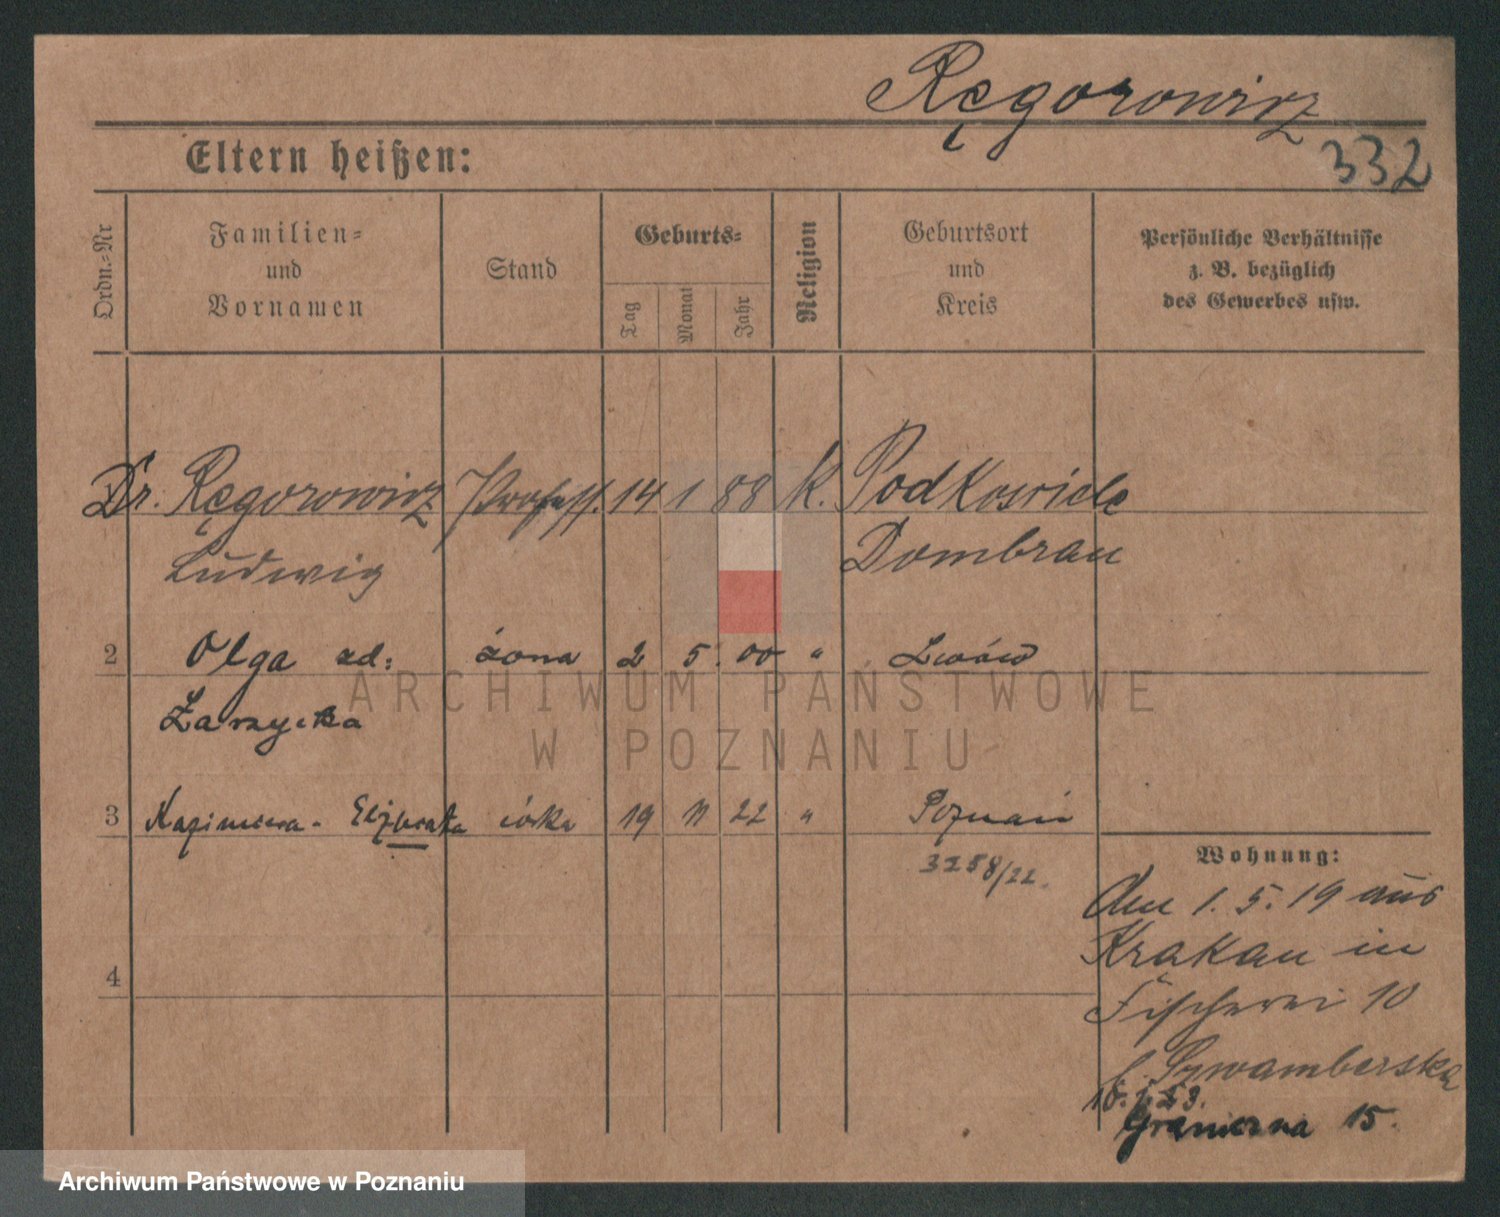 Ręgorowicz
332
Eltern heißen:
Ordn.-Nr
Familien-
und
Vornamen
Stand
Geburts-
Tag
Monat
Jahr
Religion
Geburtsort
und
Kreis
Persönliche Verhältnisse
z. B. bezüglich
des Gewerbes usw.
Dr. Ręgorowicz Profess. 14 1 88 K.
Ludwig Dombrau
2 Olga zd: żona 2 5. 00 " Lwów
Zarzycka
3 Kazimiera- Elżbieta córka 19 11 22 " Poznań
3258/22.
4
Wohnung:
Am 1. 5. 19 aus
Krakau in
Fischerei 10
b. Szwamberska
Graniczna 15.
ARCHIWUM PAŃSTWOWE
W POZNANIU
Archiwum Państwowe w Poznaniu